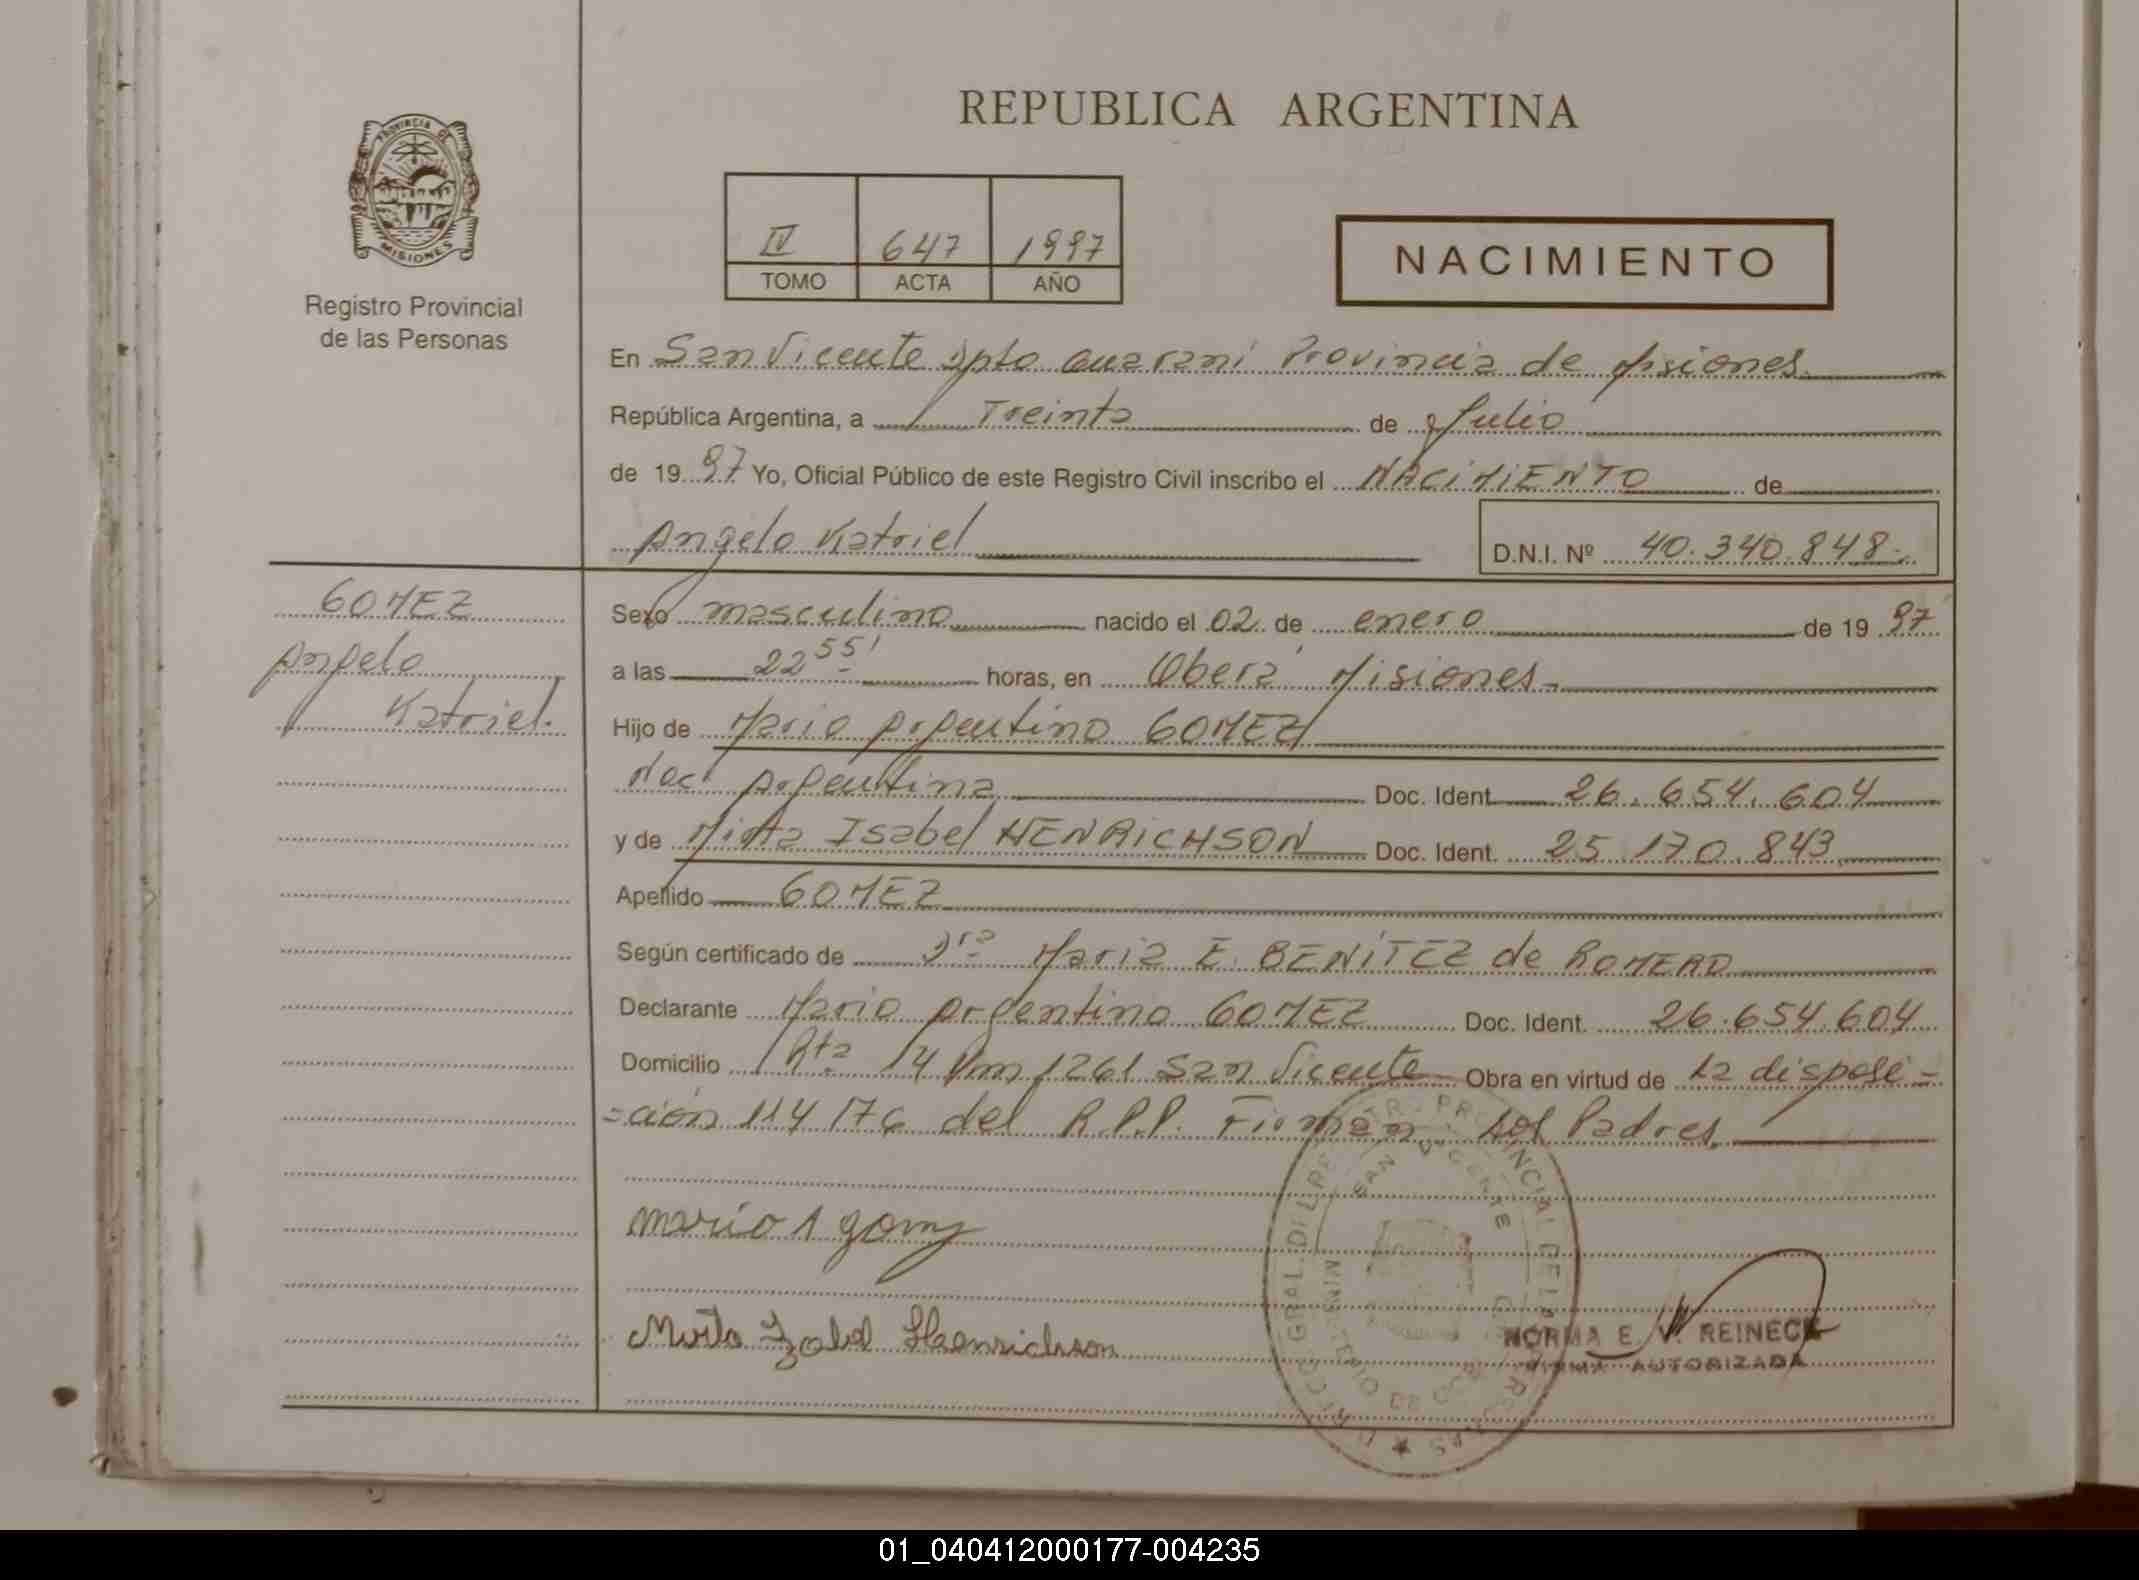 REPUBLICA ARGENTINA
PROVINCIA DE
MISIONES
Registro Provincial
de las Personas
IV 647 1997
TOMO ACTA AÑO
NACIMIENTO
En San Vicente Dpto Guarani Provincia de Misiones
República Argentina, a Treinta de Julio
de 1997 Yo, Oficial Público de este Registro Civil inscribo el NACIMIENTO de
Angelo Katriel D.N.I. Nº 40.340.848.-
GOMEZ
Angelo
Katriel.
Sexo masculino nacido el 02 de enero de 1997
a las 22 55' horas, en Oberá Misiones.-
Hijo de Mario Argentino GOMEZ
Nac. Argentina Doc. Ident. 26.654.604
y de Mirta Isabel HENRICHSON Doc. Ident. 25.170.843
Apellido GOMEZ
Según certificado de Dra Maria E. BENÍTEZ de ROMERO
Declarante Mario Argentino GOMEZ Doc. Ident. 26.654.604
Domicilio Rta 14 Km 1261 San Vicente Obra en virtud de la disposi-
-ción 114/76 del R.P.P. Firman los Padres.
mario A gomez
Mirta Izabel Henrichson
SAN VICENTE
MINISTERIO DE GOB
NORMA E. V. REINECK
FIRMA AUTORIZADA
01_040412000177-004235